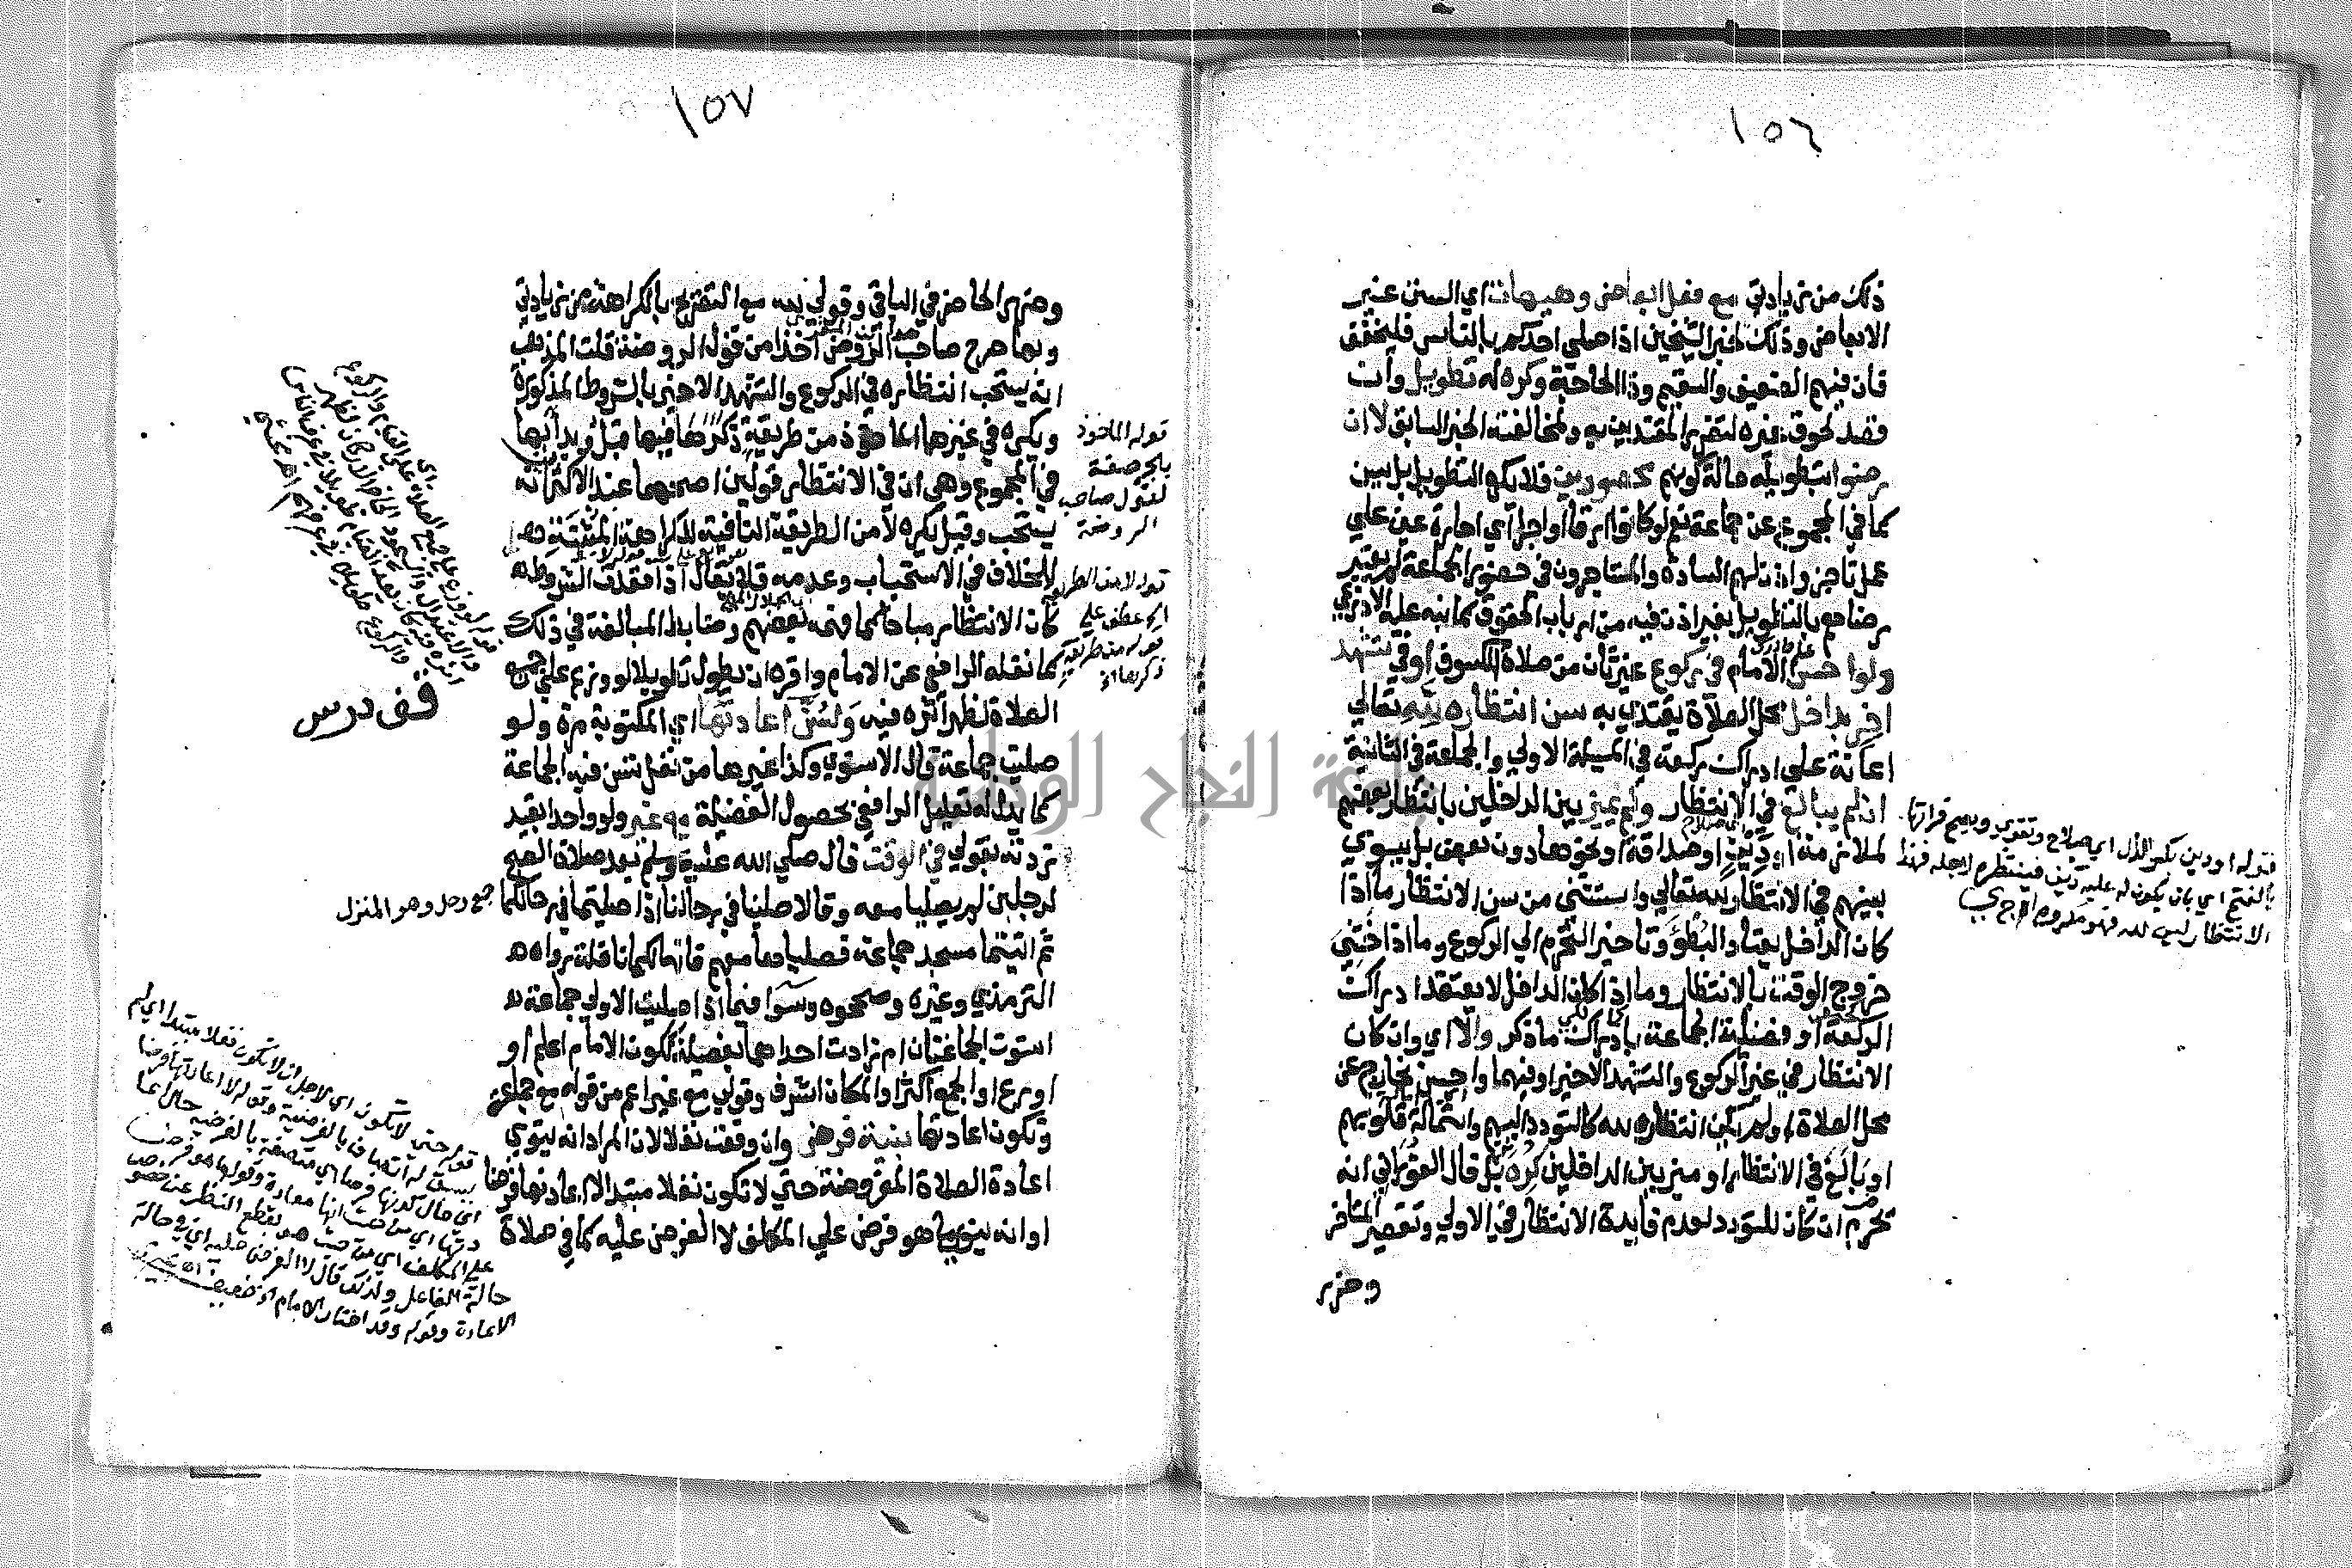 ١٥٦
ذلك من زيادتي مع فعل ابعاض وهيهات اي السنن غير
الابعاض وذلك لخبر الشيخين اذا صلي احدكم بالناس فليخفف
فان فيهم الضعيف والسقيم وذا الحاجة وكره له تطويل وان
قصد لحوق غيره لتضرر المقتدين به ولمخالفته الخبر السابق لا ان
رضوا بتطويله حالة كونهم محصورين فلا يكره التطويل بل يسن
كما في المجموع عن جماعة نعم لو كانوا ارقا او اجرا اي اجارة عين علي
عمل ناجز واذن لهم السادة والمستاجرون في حضور الجماعة لم يعتبر
رضاهم بالتطويل بغير اذن فيه من ارباب الحقوق كما نبه عليه الاذرعي
ولو احس الامام في ركوع غير ثان من صلاة الكسوف او في تشهد
اخر بداخل محل الصلاة يقتدي به سن انتظاره لله تعالي
اعانة علي ادراك ركعة في المسيلة الاولي والجماعة في الثانية
ان لم يبالغ في الانتظار ولم يميز بين الداخلين بانتظار بعضهم
لملازمته او دين او صداقة او نحوها دون بعض بل يسوي
بينهم في الانتظار لله تعالي واستثني من سن الانتظار ما اذا
كان الداخل يعتاد البطؤ وتاخير التحرم الي الركوع وما اذا خشي
خروج الوقت بالانتظار وما اذا كان الداخل لا يعتقد ادراك
الركعة او فضيلة الجماعة بادراك ما ذكر والا اي وان كان
الانتظار في غير الركوع والتشهد الاخير او فيهما واحس بخارج عن
محل الصلاة او لم يكن انتظاره لله كالتودد اليهم واستمالة قلوبهم
او بالغ في الانتظار او ميز بين الداخلين كره بل قال الفوراني انه
يحرم ان كان للتودد لعدم فايدة الانتظار في الاولي وتقصير المتاخر
وضرر
قوله او دين بكسر الدال اي صلاح وتقوي ويصح قراتها
بالفتح اي بان يكون له عليه دين فينتظره لاجله فهذا
الانتظار ليس لله فهو مكروه
١٥٧
وضرر الحاضر في الباقي وقولي لله مع التصريح بالكراهة من زيادتي
وبها صرح صاحب الروض اخذا من قول الروضة قلت المذهب
انه يستحب انتظاره في الركوع والتشهد الاخير بالشروط المذكورة
ويكره في غيرها الماخوذ من طريقة ذكرها فيها قبل وبدا بها
في المجموع وهي ان في الانتظار قولين اصحهما عند الاكثر انه
يستحب وقيل يكره لا من الطريقة النافية للكراهة المثبتة
للخلاف في الاستحباب وعدمه فلا يقال اذا فقدت الشروط
كان الانتظار مباحا كما فهمه بعضهم وضابط المبالغة في ذلك
كما نقله الرافعي عن الامام واقره ان يطول تطويلا لو وزع علي جميع
الصلاة لظهر اثره فيه وسن اعادتها اي المكتوبة مرة ولو
صليت جماعة قال الاسنوي وكذا غيرها من نفل تسن فيه الجماعة
كما يدل له تعليل الرافعي بحصول الفضيلة مع غير ولو واحدا بقيد
زدته بقولي في الوقت قال صلي الله عليه وسلم بعد صلاة الصبح
لرجلين لم يصليا معه وقالا صلينا في رحالنا اذا صليتما في رحالكما
ثم اتيتما مسجد جماعة فصلياها معهم فانها لكما نافلة رواه
الترمذي وغيره وصححوه وسوا فيما اذا صليت الاولي جماعة
استوت الجماعتان ام زادت احداهما بفضيلة ككون الامام اعلم او
اورع او الجمع اكثر او المكان اشرف وقولي مع غير اعم من قوله مع جماعة
وتكون اعادتها بنية فرض وان وقعت نفلا لان المراد انه ينوي
اعادة الصلاة المفروضة حتي لا تكون نفلا مبتدا لا اعادتها فرضا
او انه ينوي ما هو فرض علي المكلف لا الفرض عليه كما في صلاة
قوله الماخوذ
بالجر صفة
لقول صاحب
الروضة
قوله لا من الطريقة
اي عطف علي
قوله من طريقة
ذكرها
قف درس
جمع رحل وهو المنزل
قوله حتي لا تكون اي لاجل ان لا تكون نفلا مبتدا اي لم
يسبق له اتصاف بالفرضية وقوله لا اعادتها فرضا